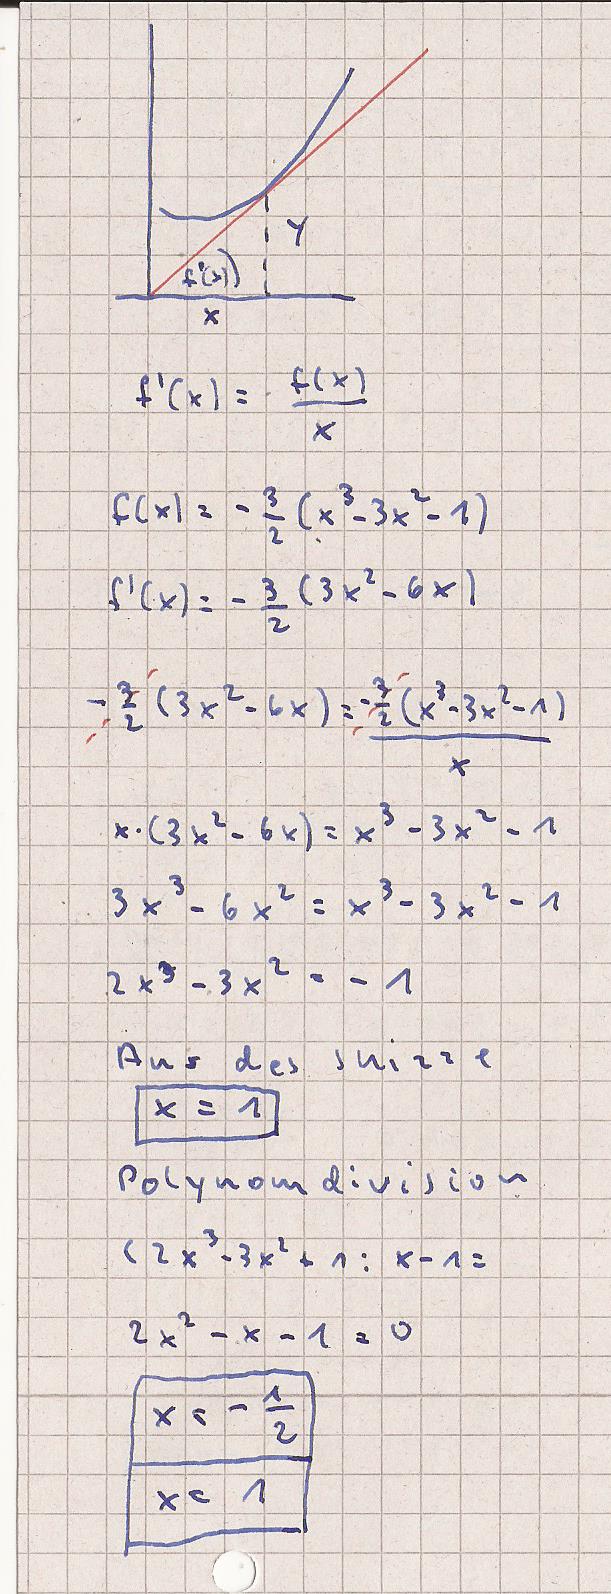 y
f'(x)
x
f'(x) = f(x)/x
f(x) = -3/2 (x³ - 3x² - 1)
f'(x) = -3/2 (3x² - 6x)
-3/2 (3x² - 6x) = -3/2 (x³ - 3x² - 1)/x
x·(3x² - 6x) = x³ - 3x² - 1
3x³ - 6x² = x³ - 3x² - 1
2x³ - 3x² = -1
Aus des skizze
x = 1
Polynomdivision
(2x³ - 3x² + 1 : x - 1 =
2x² - x - 1 = 0
x = -1/2
x = 1